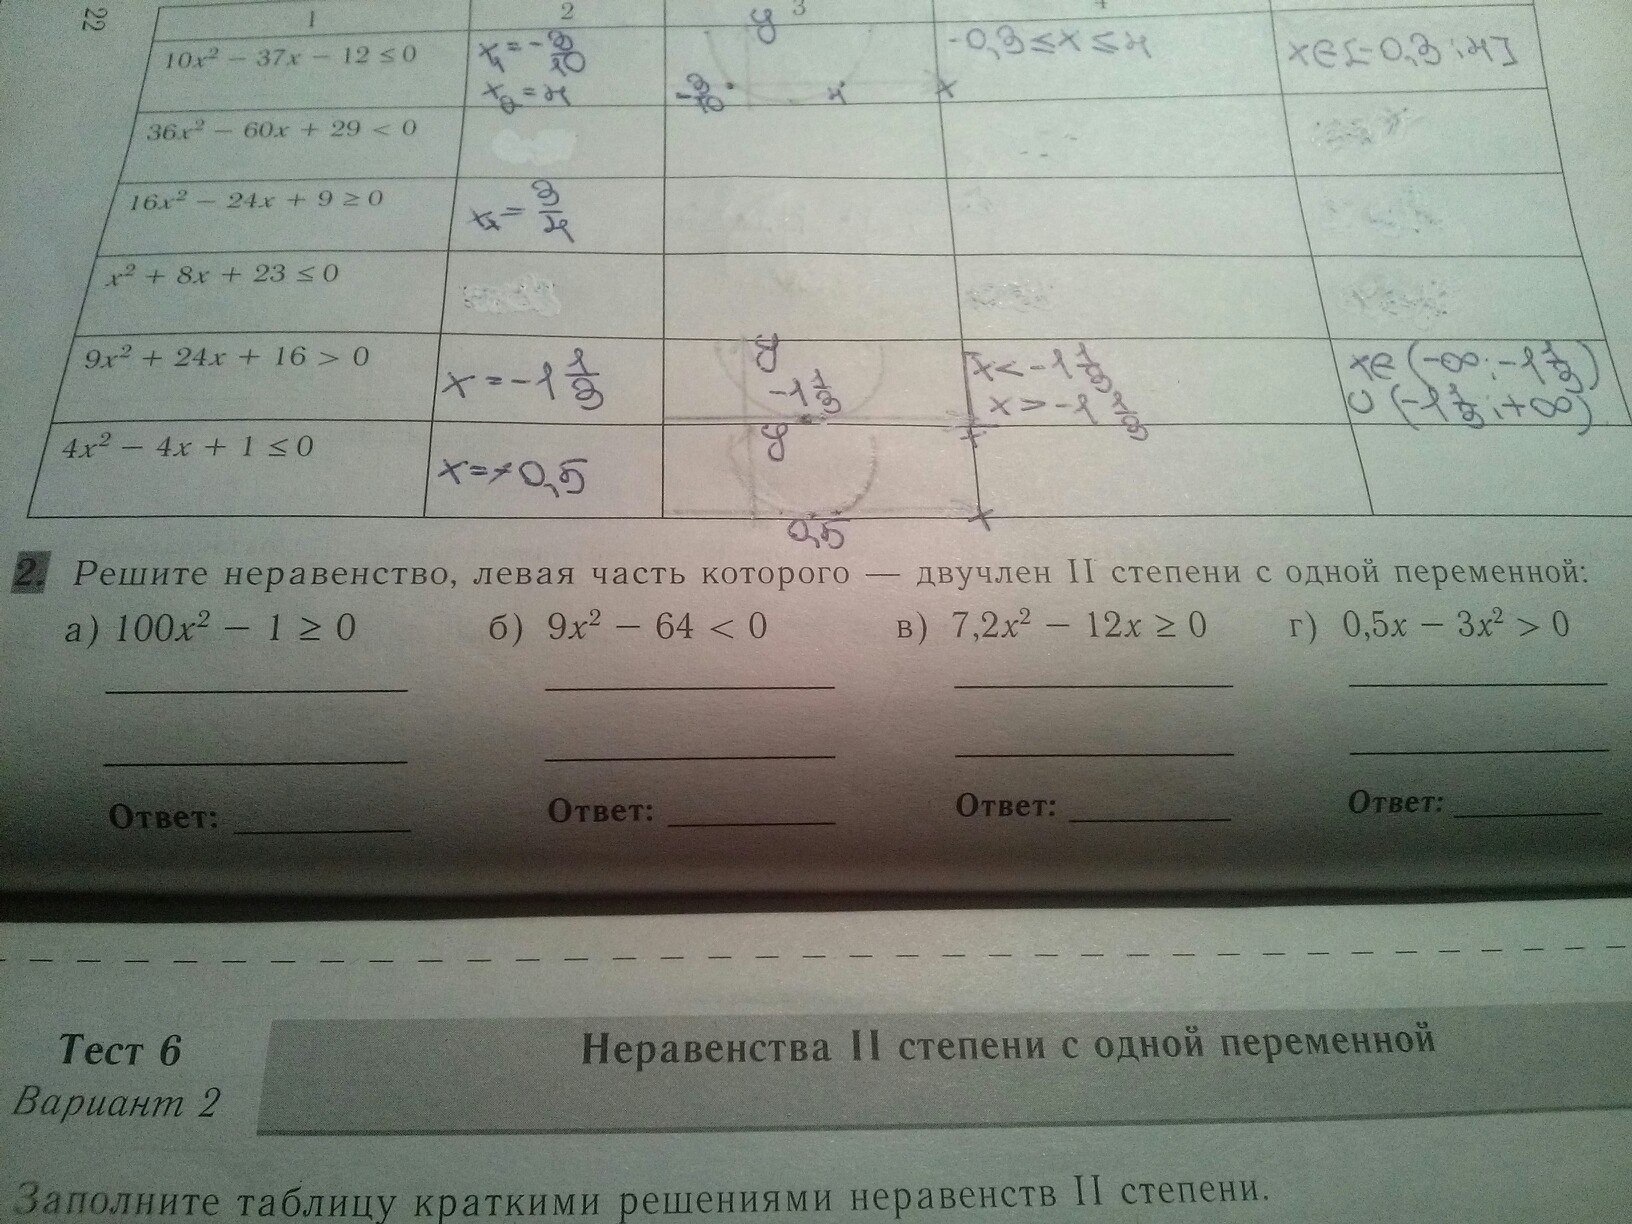 22
1 2 3 4
10x² − 37x − 12 ≤ 0 x₁ = −3/10 y −0,3 ≤ x ≤ 4 x∈[−0,3;4]
x₂ = 4 −3/10 4 x
36x² − 60x + 29 < 0
16x² − 24x + 9 ≥ 0 x₁ = 3/4
x² + 8x + 23 ≤ 0
9x² + 24x + 16 > 0 x = −1 1/3 y −1 1/3 x [x < −1 1/3 x∈(−∞;−1 1/3)
x > −1 1/3 ∪(−1 1/3;+∞)
4x² − 4x + 1 ≤ 0 x = 0,5 y 0,5 x
2. Решите неравенство, левая часть которого — двучлен II степени с одной переменной:
а) 100x² − 1 ≥ 0 б) 9x² − 64 < 0 в) 7,2x² − 12x ≥ 0 г) 0,5x − 3x² > 0
Ответ: Ответ: Ответ: Ответ:
Тест 6 Неравенства II степени с одной переменной
Вариант 2
Заполните таблицу краткими решениями неравенств II степени.